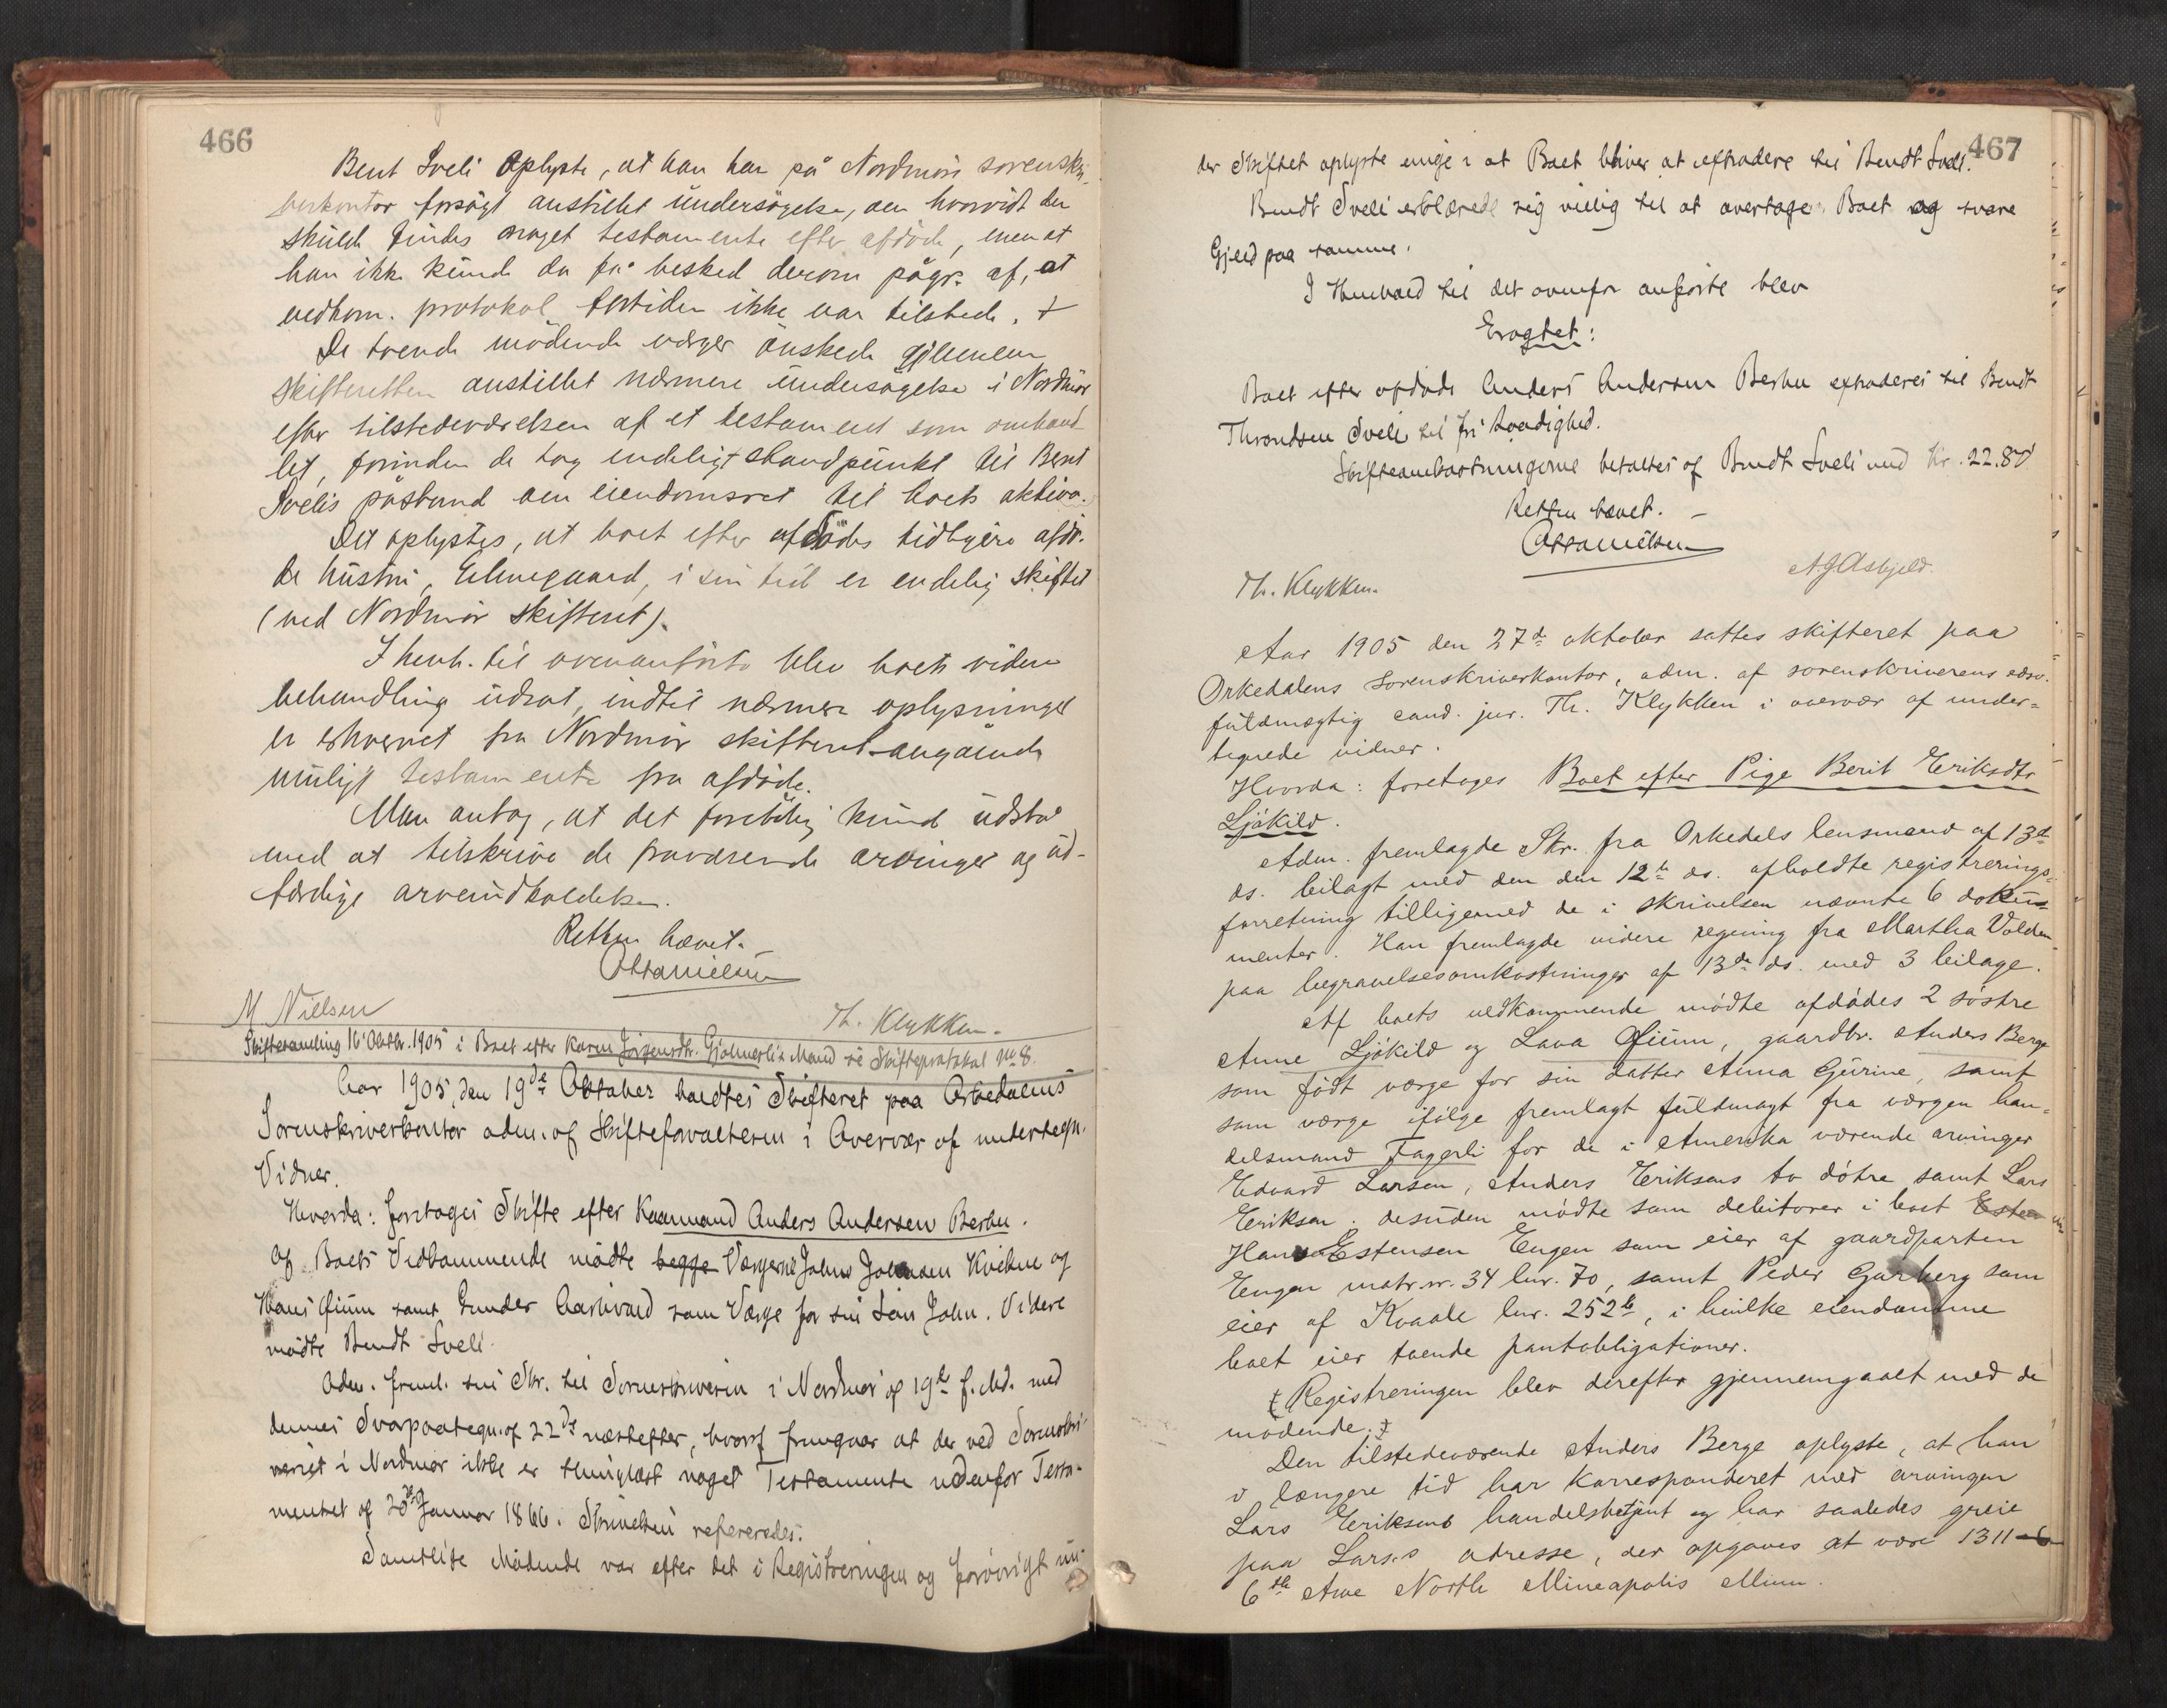 466
Bent Sveli oplyste, at han har på Nordmørs sorenskri-
verkontor forsøgt anstillet undersøgelse, om hvorvidt der
skulde findes noget testamente efter afdøde, men at
han ikke kunde da få besked derom pågr. af, at
vedkom. protokol fortiden ikke var tilstede. +
De tvende mødende værger ønskede gjennem
skifteretten anstillet nærmere undersøgelse i Nordmør
efter tilstedeværelsen af et testament som omhand
let, forinden de tog endeligt standpunkt til Bent
Svelis påstand om eiendomsret til boets aktiva.
Det oplystes, at boet efter afdødes tidligere afdø-
de hustru, , i sin tid er endelig skiftet
(ved Nordmør skifteret).
I henh. til ovenanførte blev boets videre
behandling udsat, indtil nærmere oplysninger
er erhvervet fra Nordmør skifteret angående
muligt testamente fra afdøde.
Man antog, at det foreløbig kunde udstå
med at tilskrive de fraværende arvinger og ud-
færdige arveindkaldelse.
Retten hævet.
Ottonielsen
M Nielsen
Th. Klykken.
Skiftesamling 16 Oktbr. 1905 i Boet efter Karen Jørgensdtr. Gjølmesli & Mand se Skifteprotokol No 8.
Aar 1905, den 19de Oktober holdtes Skifteret paa Orkedalens
Sorenskriverkontor adm. af Skifteforvalteren i Overvær af undertegn.
Vidner.
Hvorda: foretoges Skifte efter Kaarmand Anders Andersen Berbu.
Af Boets Vedkommende mødte begge Værgerne Johns Johnsen Kvikne og
Hans Øium samt Gunder Aarlivold som Værge for sin Søn John. Videre
mødte Bendt Sveli.
Adm. freml. sin Skr. til Sorenskriveren i Nordmør af 19de f. Md. med
dennes Svarpaategn. af 22de næstefter, hvoraf fremgaar at der ved Sorenskri-
veriet i Nordmør ikke er thinglæst noget Testamente udenfor Testa-
mentet af 20de Januar 1866. Skrivelsen refereredes.
Samtlige Mødende var efter det i Registreringen og forøvrigt un-
467
der Skiftet oplyste enige i at Boet bliver at extradere til Bendt Sveli.
Bendt Sveli erklærede sig villig til at overtage Boet og svare
Gjeld paa samme.
I Henhold til det ovenfor anførte blev
Eragtet:
Boet efter afdøde Anders Andersen Berbu extraderes til Bendt
Throndsen Sveli til fri Raadighed.
Skifteomkostningerne betaltes af Bendt Sveli med kr. 22.80
Retten hævet. –
Ottonielsen
Th. Klykken.
A. J. Asbjeld.
Aar 1905 den 27de oktober sattes skifteret paa
Orkedalens sorenskriverkontor, adm. af sorenskriverens edsv.
fuldmægtig cand. jur. Th. Klykken i overvær af under-
tegnede vidner.
Hvorda: foretoges Boet efter Pige Berit Eriksdtr
Ljøkild.
Adm. fremlagde Skr. fra Orkedals lensmand af 13de
ds. bilagt med den den 12te ds. afholdte registrerings-
forretning tilligemed de i skrivelsen nævnte 6 doku-
menter. Han fremlagde videre regning fra Martha Volden
paa begravelsesomkostninger af 13de ds. med 3 bilage.
Af boets vedkommende mødte afdødes 2 søstre
Anne Ljøkild og Lava Øium, gaardbr. Anders Berge
som født værge for sin datter Anna Gurine, samt
som værge ifølge fremlagt fuldmagt fra værgen han-
delsmand Fagerli for de i Amerika værende arvinger
Edvard Larsen, Anders Eriksens to døtre samt Lars
Eriksen. desuden mødte som debitorer i boet Esten
Hans Estensen Engen som eier af gaardparten
Engen matr. nr. 34 lnr. 70, samt Peder Garberg som
eier af Kvaale lnr. 252b, i hvilke eiendomme
boet eier tvende pantobligationer.
Registreringen blev derefter gjennemgaaet med de
mødende.
Den tilstedeværende Anders Berge oplyste, at han
i længere tid har korresponderet med arvingen
Lars Eriksens handelsbetjent og har saaledes greie
paa Lars.s adresse, der opgaves at være 1311 6
6th Ave North Mineapolis Minn.